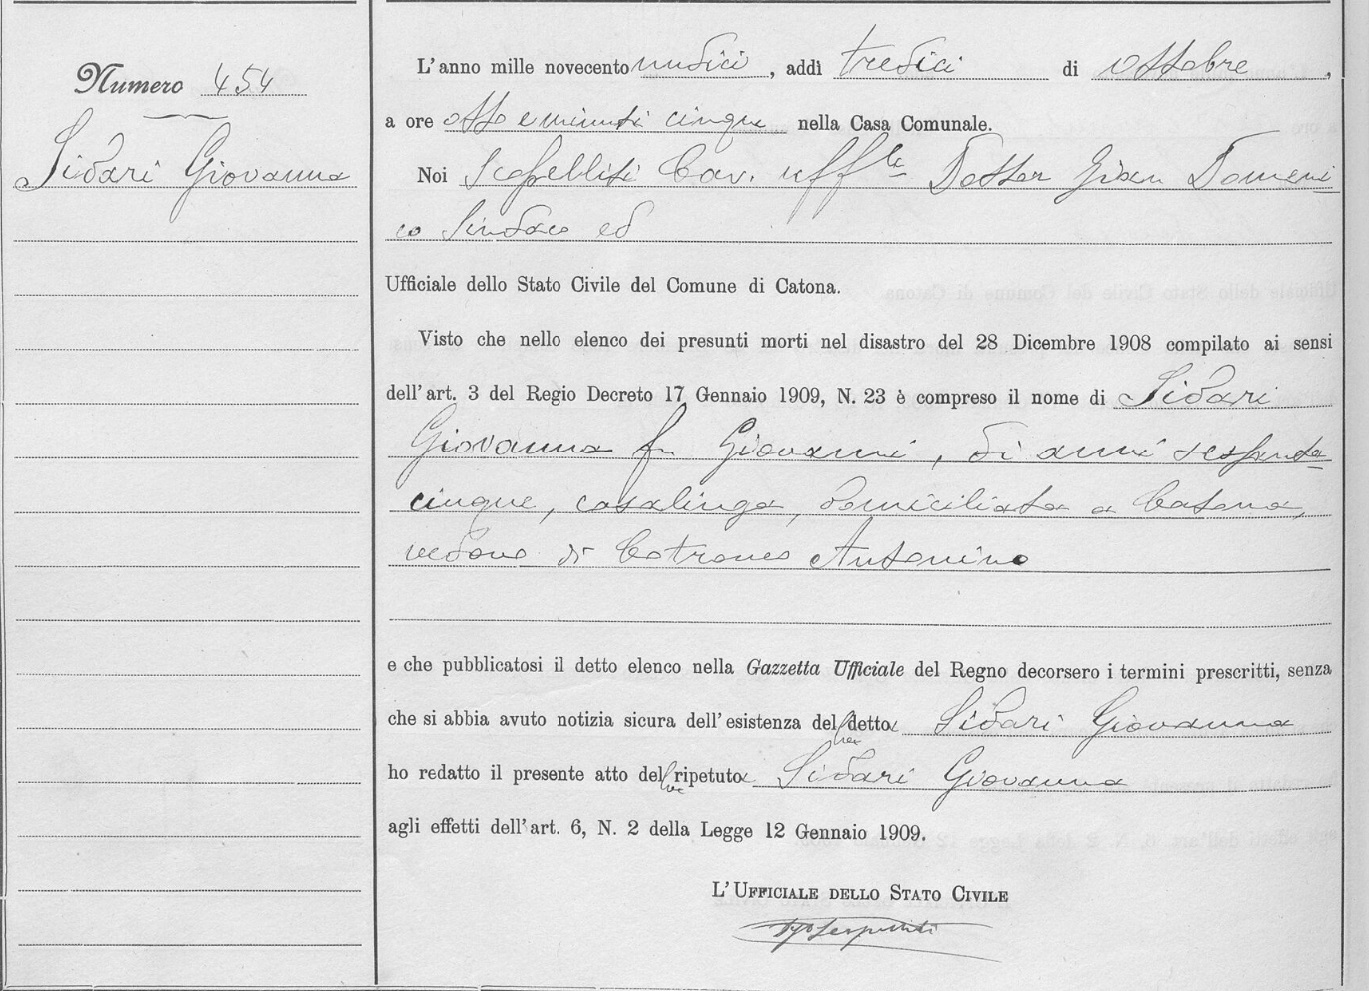 Numero 454
Sidari Giovanna
L'anno mille novecento undici, addì tredici di ottobre,
a ore otto e minuti cinque nella Casa Comunale.
Noi Scopelliti Cav. uff.le Dottor Gian Domeni
co Sindaco ed
Ufficiale dello Stato Civile del Comune di Catona.
Visto che nello elenco dei presunti morti nel disastro del 28 Dicembre 1908 compilato ai sensi
dell'art. 3 del Regio Decreto 17 Gennaio 1909, N. 23 è compreso il nome di Sidari
Giovanna fu Giovanni, di anni sessanta
cinque, casalinga, domiciliata a Catona,
vedova di Cotroneo Antonino
e che pubblicatosi il detto elenco nella Gazzetta Ufficiale del Regno decorsero i termini prescritti, senza
che si abbia avuto notizia sicura dell'esistenza della detta Sidari Giovanna
ho redatto il presente atto della ripetuta Sidari Giovanna
agli effetti dell'art. 6, N. 2 della Legge 12 Gennaio 1909.
L'UFFICIALE DELLO STATO CIVILE